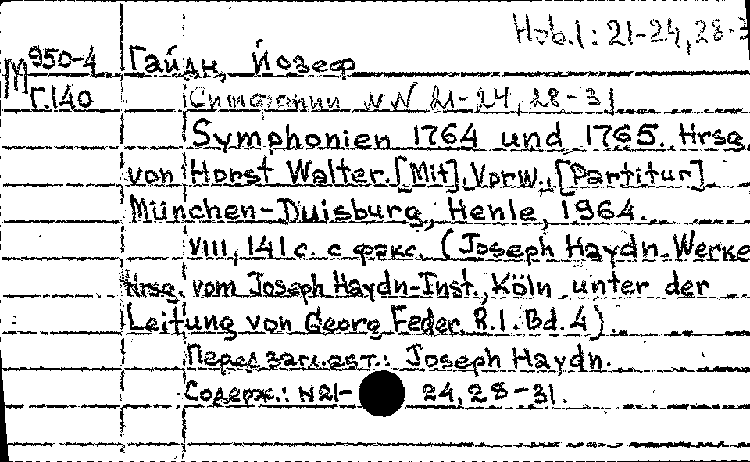 Hob.I: 21-24, 28-3
M 950-4 Гайдн, Йозеф
Г.140 Симфонии NN 21-24, 28-31
Symphonien 1764 und 1765. Hrsg.
von Horst Walter. [Mit] Vorw., [Partitur].
München-Duisburg, Henle, 1964.
VIII, 141 с. с факс. (Joseph Haydn. Werke
Hrsg. vom Joseph Haydn-Inst., Köln unter der
Leitung von Georg Feder. R.I. Bd. 4).
Перед загл. авт.: Joseph Haydn.
Содерж.: N21-24, 28-31.